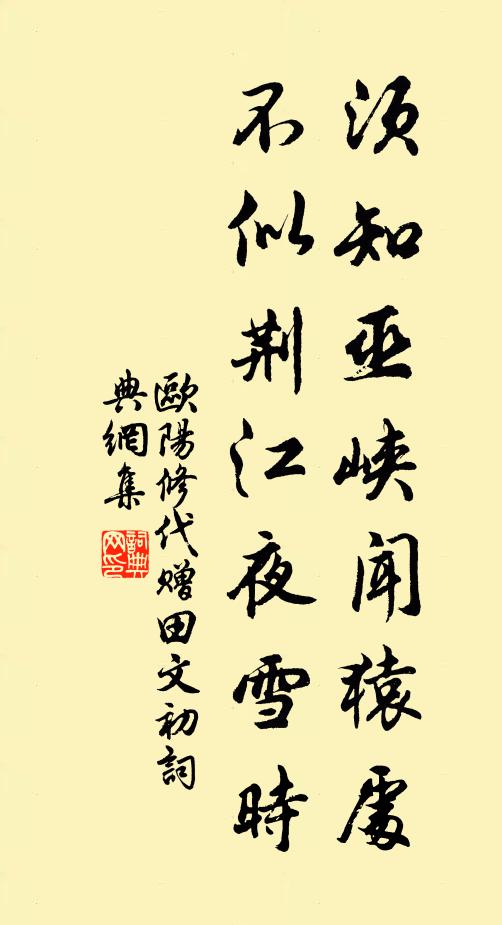 須知巫峽聞猿處
不似荆江夜雪時
歐陽修代贈田文初詞
典網集
詞典
网印